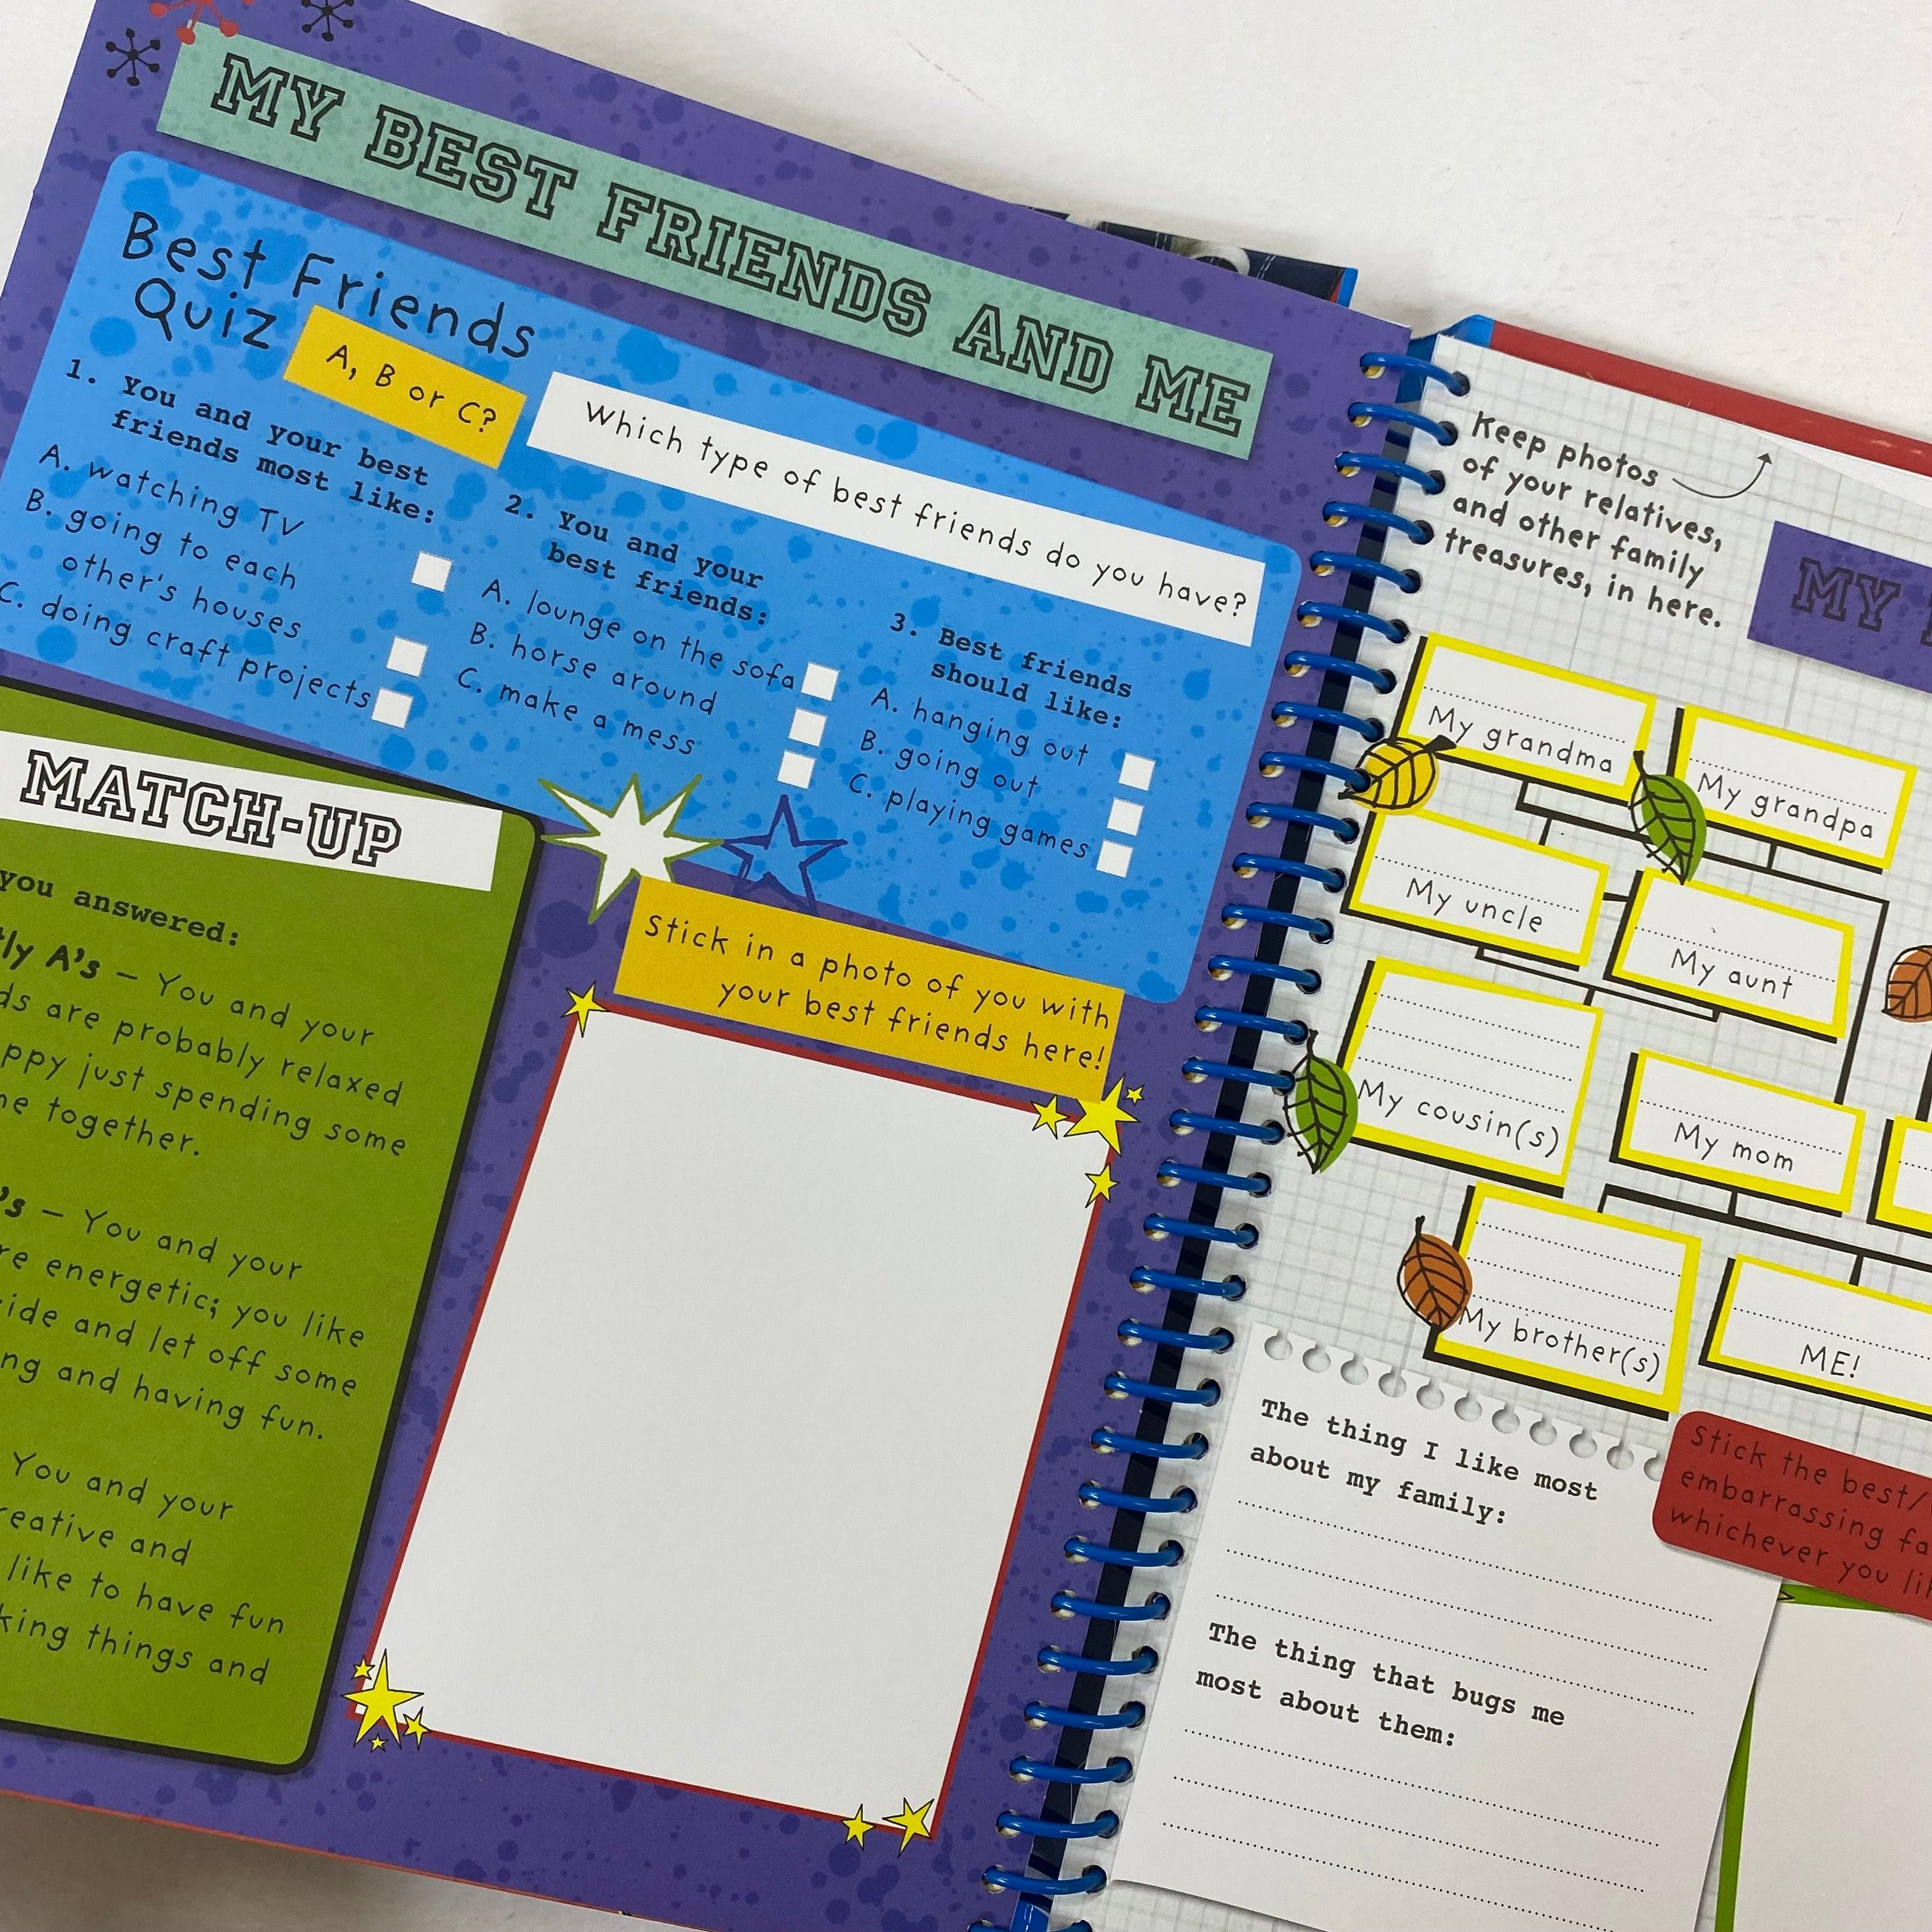 MY BEST FRIENDS AND ME
Best Friends
Quiz
A, B or C?
Which type of best friends do you have?
1. You and your best
friends most like:
A. watching TV
B. going to each
other's houses
C. doing craft projects
2. You and your
best friends:
A. lounge on the sofa
B. horse around
C. make a mess
3. Best friends
should like:
A. hanging out
B. going out
C. playing games
MATCH-UP
you answered:
A's – You and your
are probably relaxed
just spending some
together.
– You and your
energetic; you like
and let off some
and having fun.
You and your
and
like to have fun
things and
Stick in a photo of you with
your best friends here!
Keep photos
of your relatives,
and other family
treasures, in here.
MY
My grandma
My grandpa
My uncle
My aunt
My cousin(s)
My mom
My brother(s)
ME!
The thing I like most
about my family:
The thing that bugs me
most about them:
Stick the best/
embarrassing
whichever you